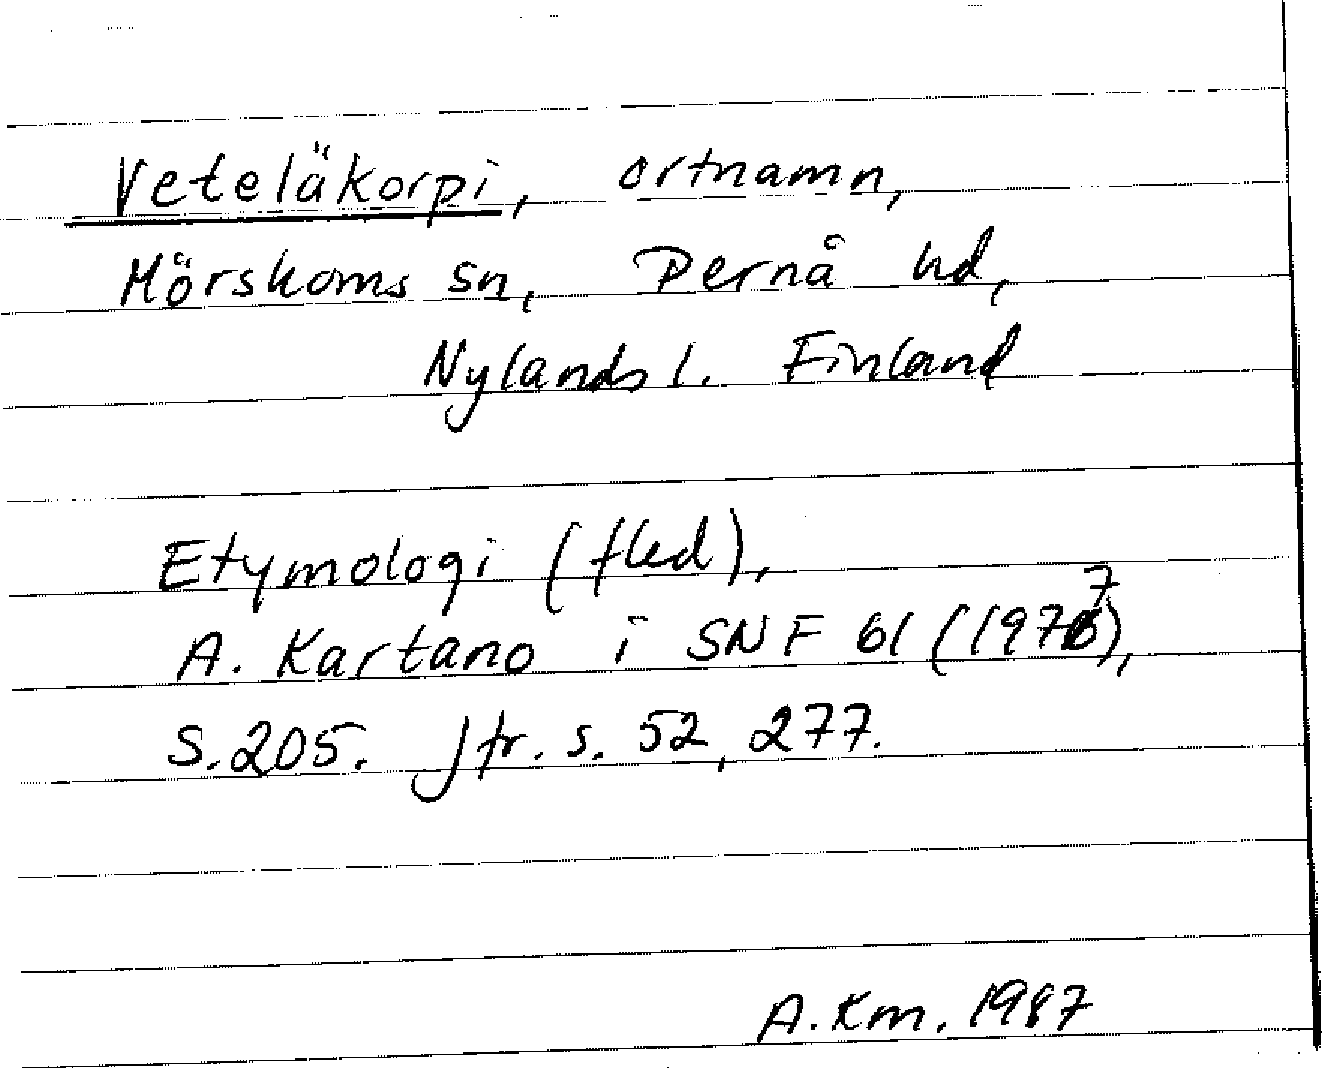 Veteläkorpi, ortnamn,
Mörskoms sn, Pernå hd,
Nylands l. Finland
Etymologi (fled),
A. Kartano i SNF 61 (1977),
S. 205. Jfr. s. 52, 277.
A. Km. 1987